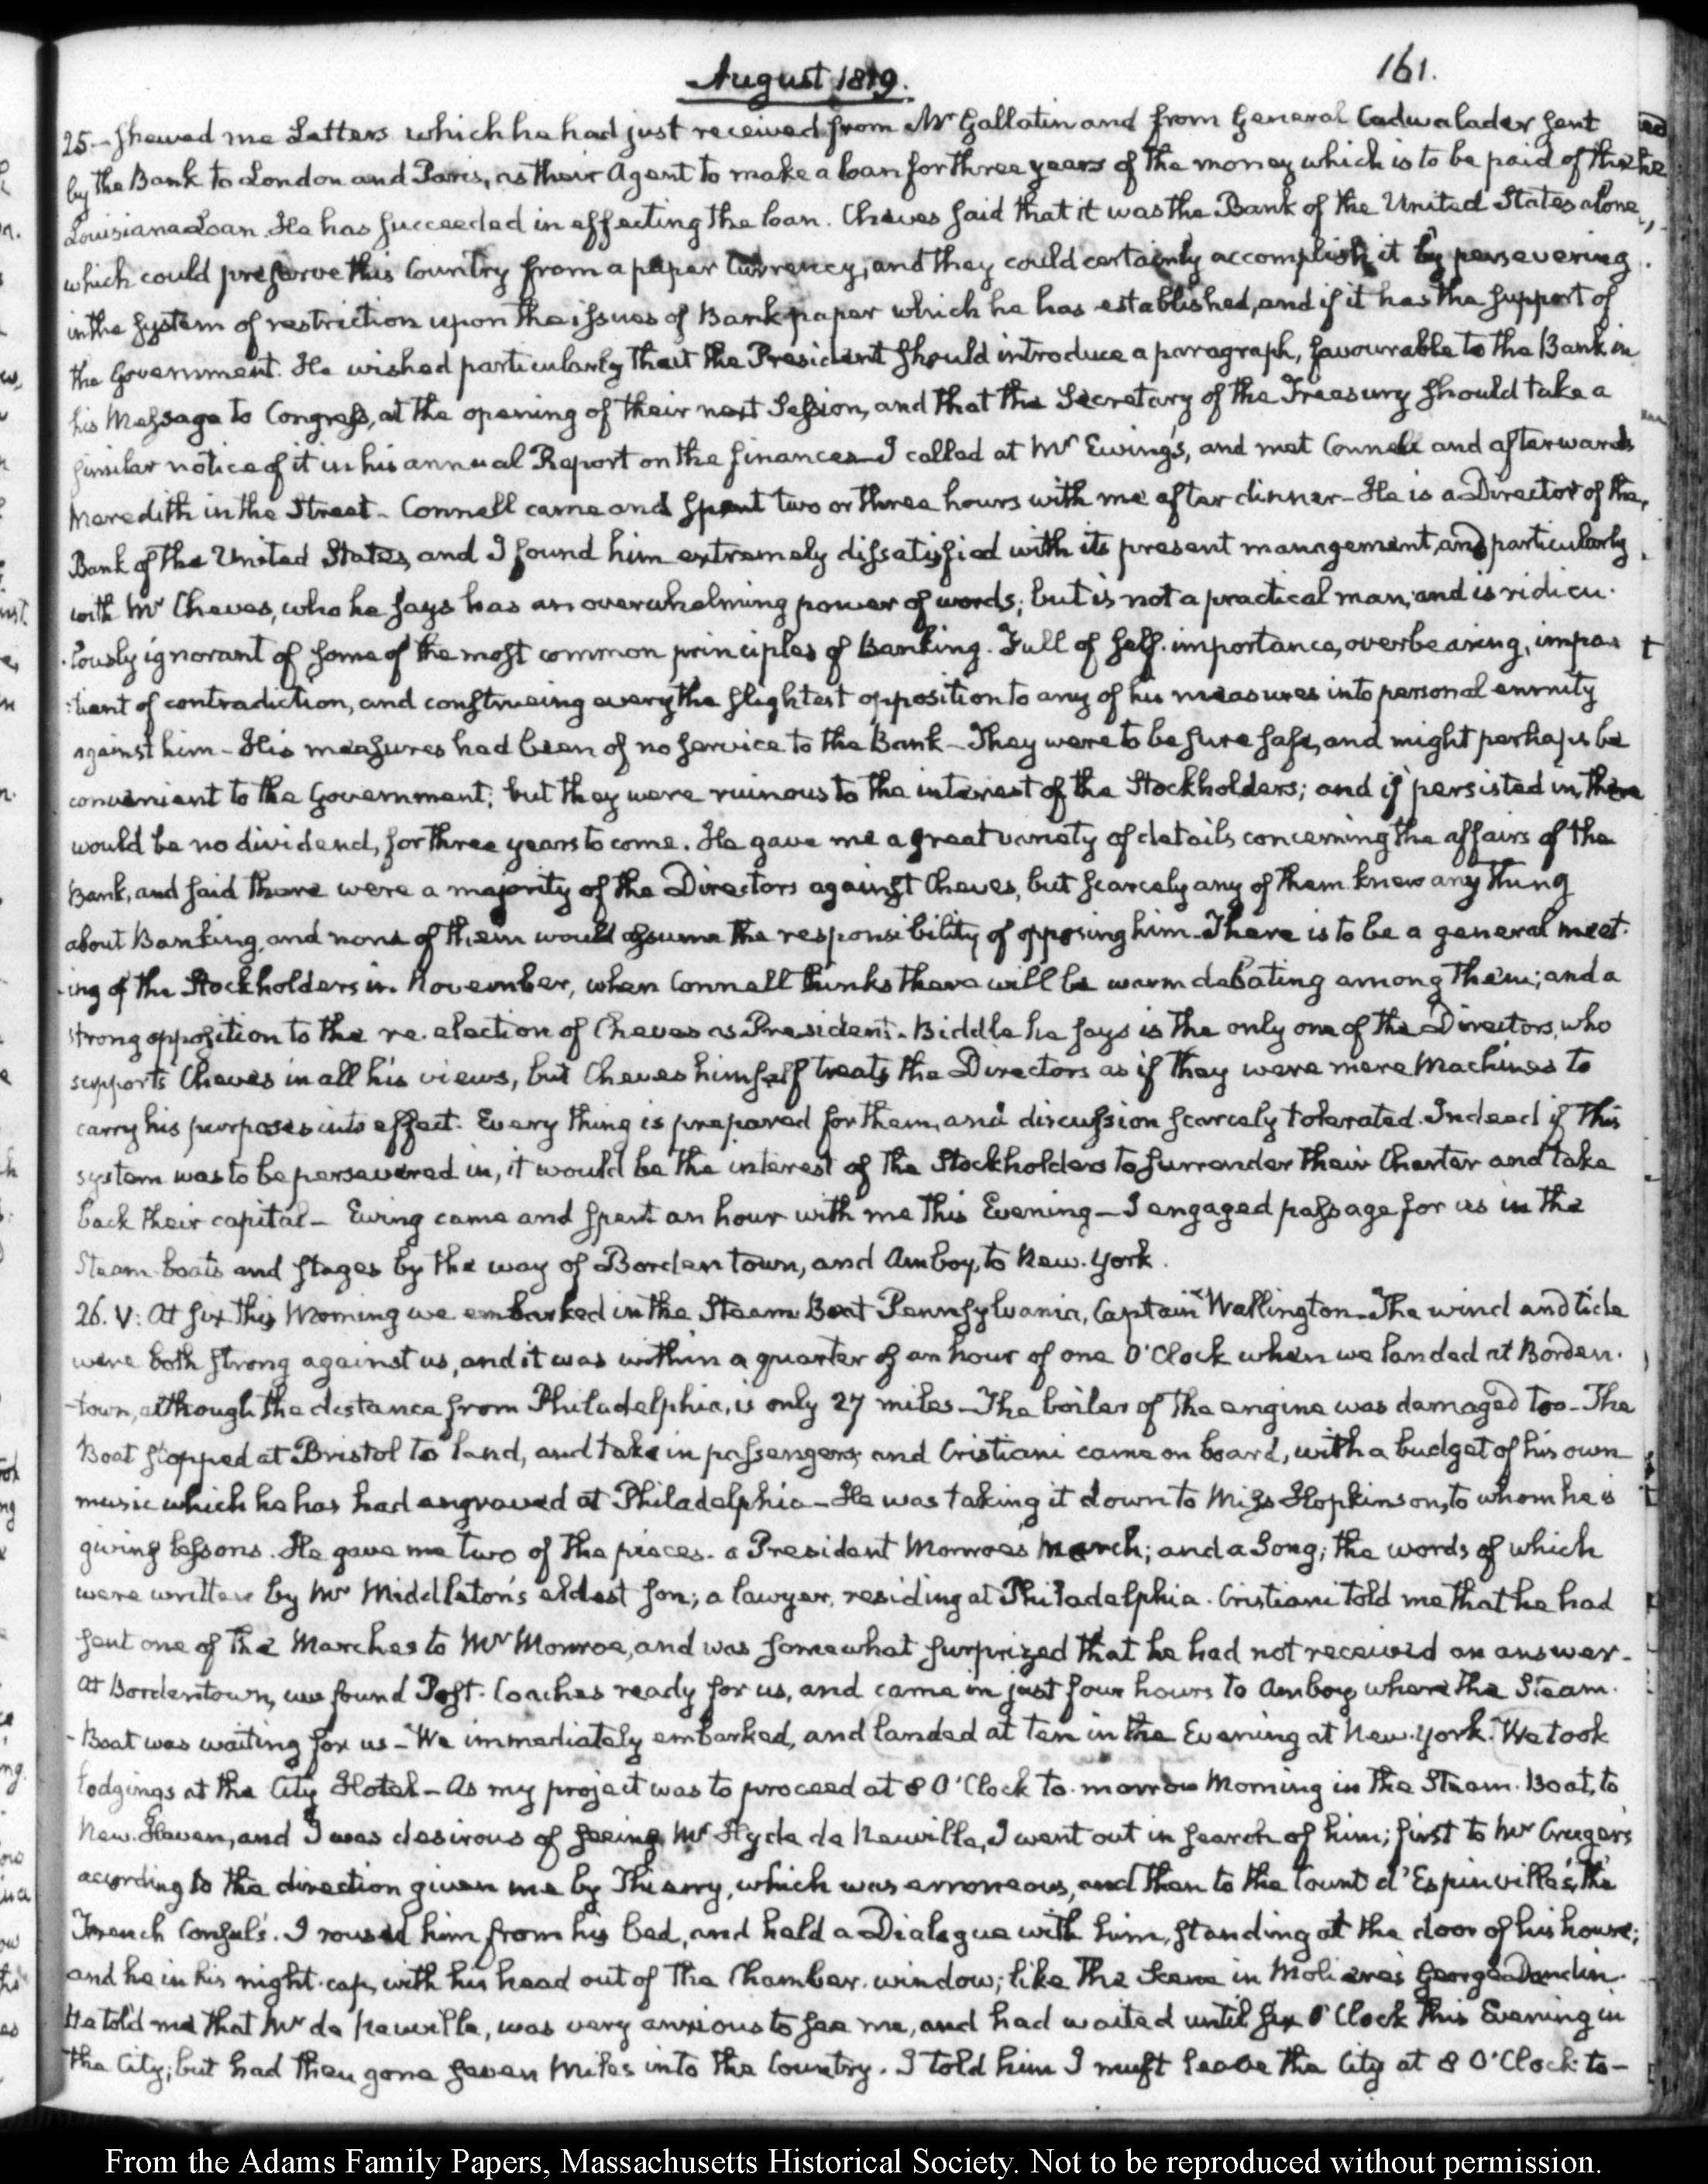 August 1819.
161.
25— shewed me Letters which he had just received from Mr Gallatin and from General Cadwalader sent
by the Bank to London and Paris, as their Agent to make a loan for three years of the money which is to be paid of the
Louisiana Loan. He has succeeded in effecting the loan. Cheves said that it was the Bank of the United States alone,
which could preserve this Country from a paper Currency, and they could certainly accomplish it by persevering
in the system of restriction upon the issues of Bank paper which he has established, and if it has the support of
the Government. He wished particularly that the President should introduce a paragraph, favourable to the Bank in
his Message to Congress, at the opening of their next Session, and that the Secretary of the Treasury should take a
similar notice of it in his annual Report on the finances— I called at Mr Ewing's, and met Connell and afterwards
Meredith in the Street— Connell came and spent two or three hours with me after dinner— He is a Director of the
Bank of the United States, and I found him extremely dissatisfied with its present management, and particularly
with Mr Cheves, who he says has an overwhelming power of words; but is not a practical man; and is ridicu-
-lously ignorant of some of the most common principles of Banking. Full of self-importance, overbearing, impa-
-tient of contradiction, and construeing every the slightest opposition to any of his measures into personal enmity
against him— His measures had been of no service to the Bank— They were to be sure safe, and might perhaps be
convenient to the Government; but they were ruinous to the interest of the Stockholders; and if persisted in, there
would be no dividend, for three years to come. He gave me a great variety of details concerning the affairs of the
Bank, and said there were a majority of the Directors against Cheves, but scarcely any of them knew any thing
about Banking, and none of them would assume the responsibility of opposing him— There is to be a general meet-
-ing of the Stockholders in November, when Connell thinks there will be warm debating among them; and a
strong opposition to the re-election of Cheves as President. Biddle he says is the only one of the Directors, who
supports Cheves in all his views, but Cheves himself treats the Directors as if they were mere Machines to
carry his purposes into effect. Every thing is prepared for them, and discussion scarcely tolerated. Indeed if this
system was to be persevered in, it would be the interest of the Stockholders to surrender their Charter and take
back their capital— Ewing came and spent an hour with me this Evening— I engaged passage for us in the
Steam-boats and stages by the way of Bordentown, and Amboy, to New-York.
26. V: At six this Morning we embarked in the Steam Boat Pennsylvania, Captain Wallington— The wind and tide
were both strong against us, and it was within a quarter of an hour of one O'Clock when we landed at Borden-
-town, although the distance from Philadelphia, is only 27 miles— The boiler of the engine was damaged too— The
Boat stopped at Bristol to land, and take in passengers, and Cristiani came on board, with a budget of his own
music which he has had engraved at Philadelphia— He was taking it down to Miss Hopkinson, to whom he is
giving lessons. He gave me two of the pieces. a President Monroe's March; and a Song; the words of which
were written by Mr Middleton's eldest son; a lawyer, residing at Philadelphia. Cristiani told me that he had
sent one of the Marches to Mr Monroe, and was somewhat surprized that he had not received an answer—
At Bordentown, we found Post-Coaches ready for us, and came in just four hours to Amboy where the Steam-
-Boat was waiting for us— We immediately embarked, and landed at ten in the Evening at New-York. We took
lodgings at the City Hotel— As my project was to proceed at 8 O'Clock to-morrow Morning in the Steam-Boat, to
New-Haven, and I was desirous of seeing Mr Hyde de Neuville, I went out in search of him; first to Mr Cruger's
according to the direction given me by Thierry, which was erroneous, and then to the Count d'Espinville's, the
French Consul's. I roused him from his bed, and held a Dialogue with him, standing at the door of his house;
and he in his night-cap, with his head out of the Chamber-window; like the Scene in Moliere's George Dandin.
He told me that Mr de Neuville, was very anxious to see me, and had waited until six O'Clock this Evening in
the City; but had then gone seven Miles into the Country. I told him I must leave the City at 8 O'Clock to—
From the Adams Family Papers, Massachusetts Historical Society. Not to be reproduced without permission.